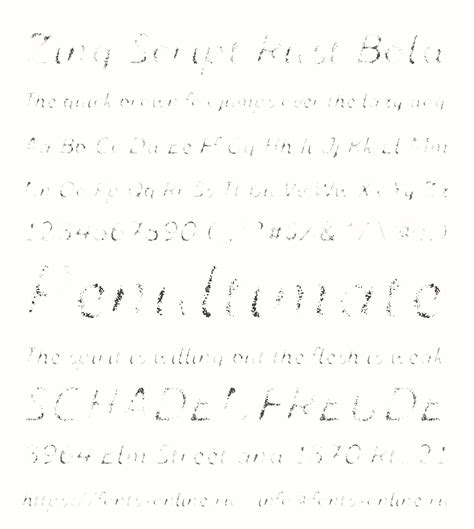 Zing Script Rust Bold
The quick brown fox jumps over the lazy dog
Aa Bb Cc Dd Ee Ff Gg Hh Ii Jj Kk Ll Mm
Nn Oo Pp Qq Rr Ss Tt Uu Vv Ww Xx Yy Zz
1234567890
Penultimate
The spirit is willing but the flesh is weak
SCHADENFREUDE
3964 Elm Street and 1370 Rt. 21
https://fonts-online.ru info@fonts-online.ru